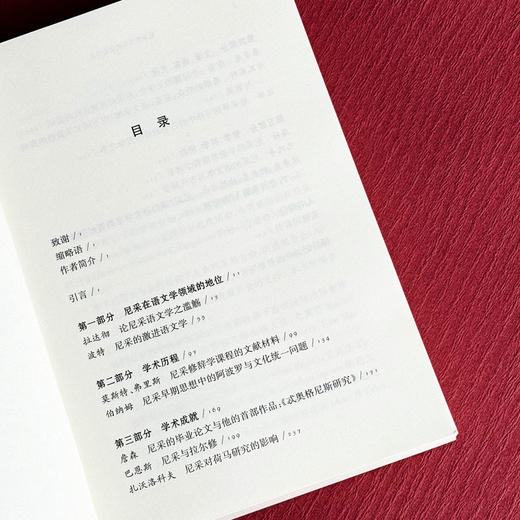 目 录
致谢 / 1
缩略语 / 1
作者简介 / 1
引言 / 1
第一部分 尼采在语文学领域的地位 / 11
拉达彻 论尼采语文学之滥觞 / 13
波特 尼采的激进语文学 / 55
第二部分 学术历程 / 97
莫斯特、弗里斯 尼采修辞学课程的文献材料 / 99
伯纳姆 尼采早期思想中的阿波罗与文化统一问题 / 134
第三部分 学术成就 / 169
詹森 尼采的毕业论文与他的首部作品:《忒奥格尼斯研究》 / 171
巴恩斯 尼采与拉尔修 / 199
扎沃洛科夫 尼采对荷马研究的影响 / 237